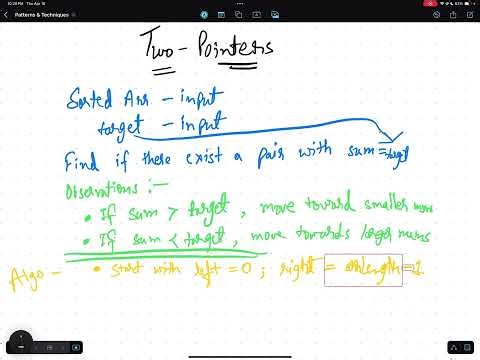 10:28 PM Thu Apr 18
Patterns & Techniques
Two-Pointers
Sorted Arr - input
target - input
Find if there exist a pair with sum = target
Observations :-
• If sum > target, move toward smaller nums
• If sum < target, move towards larger nums
Algo - • Start with left = 0; right = arr.length-1